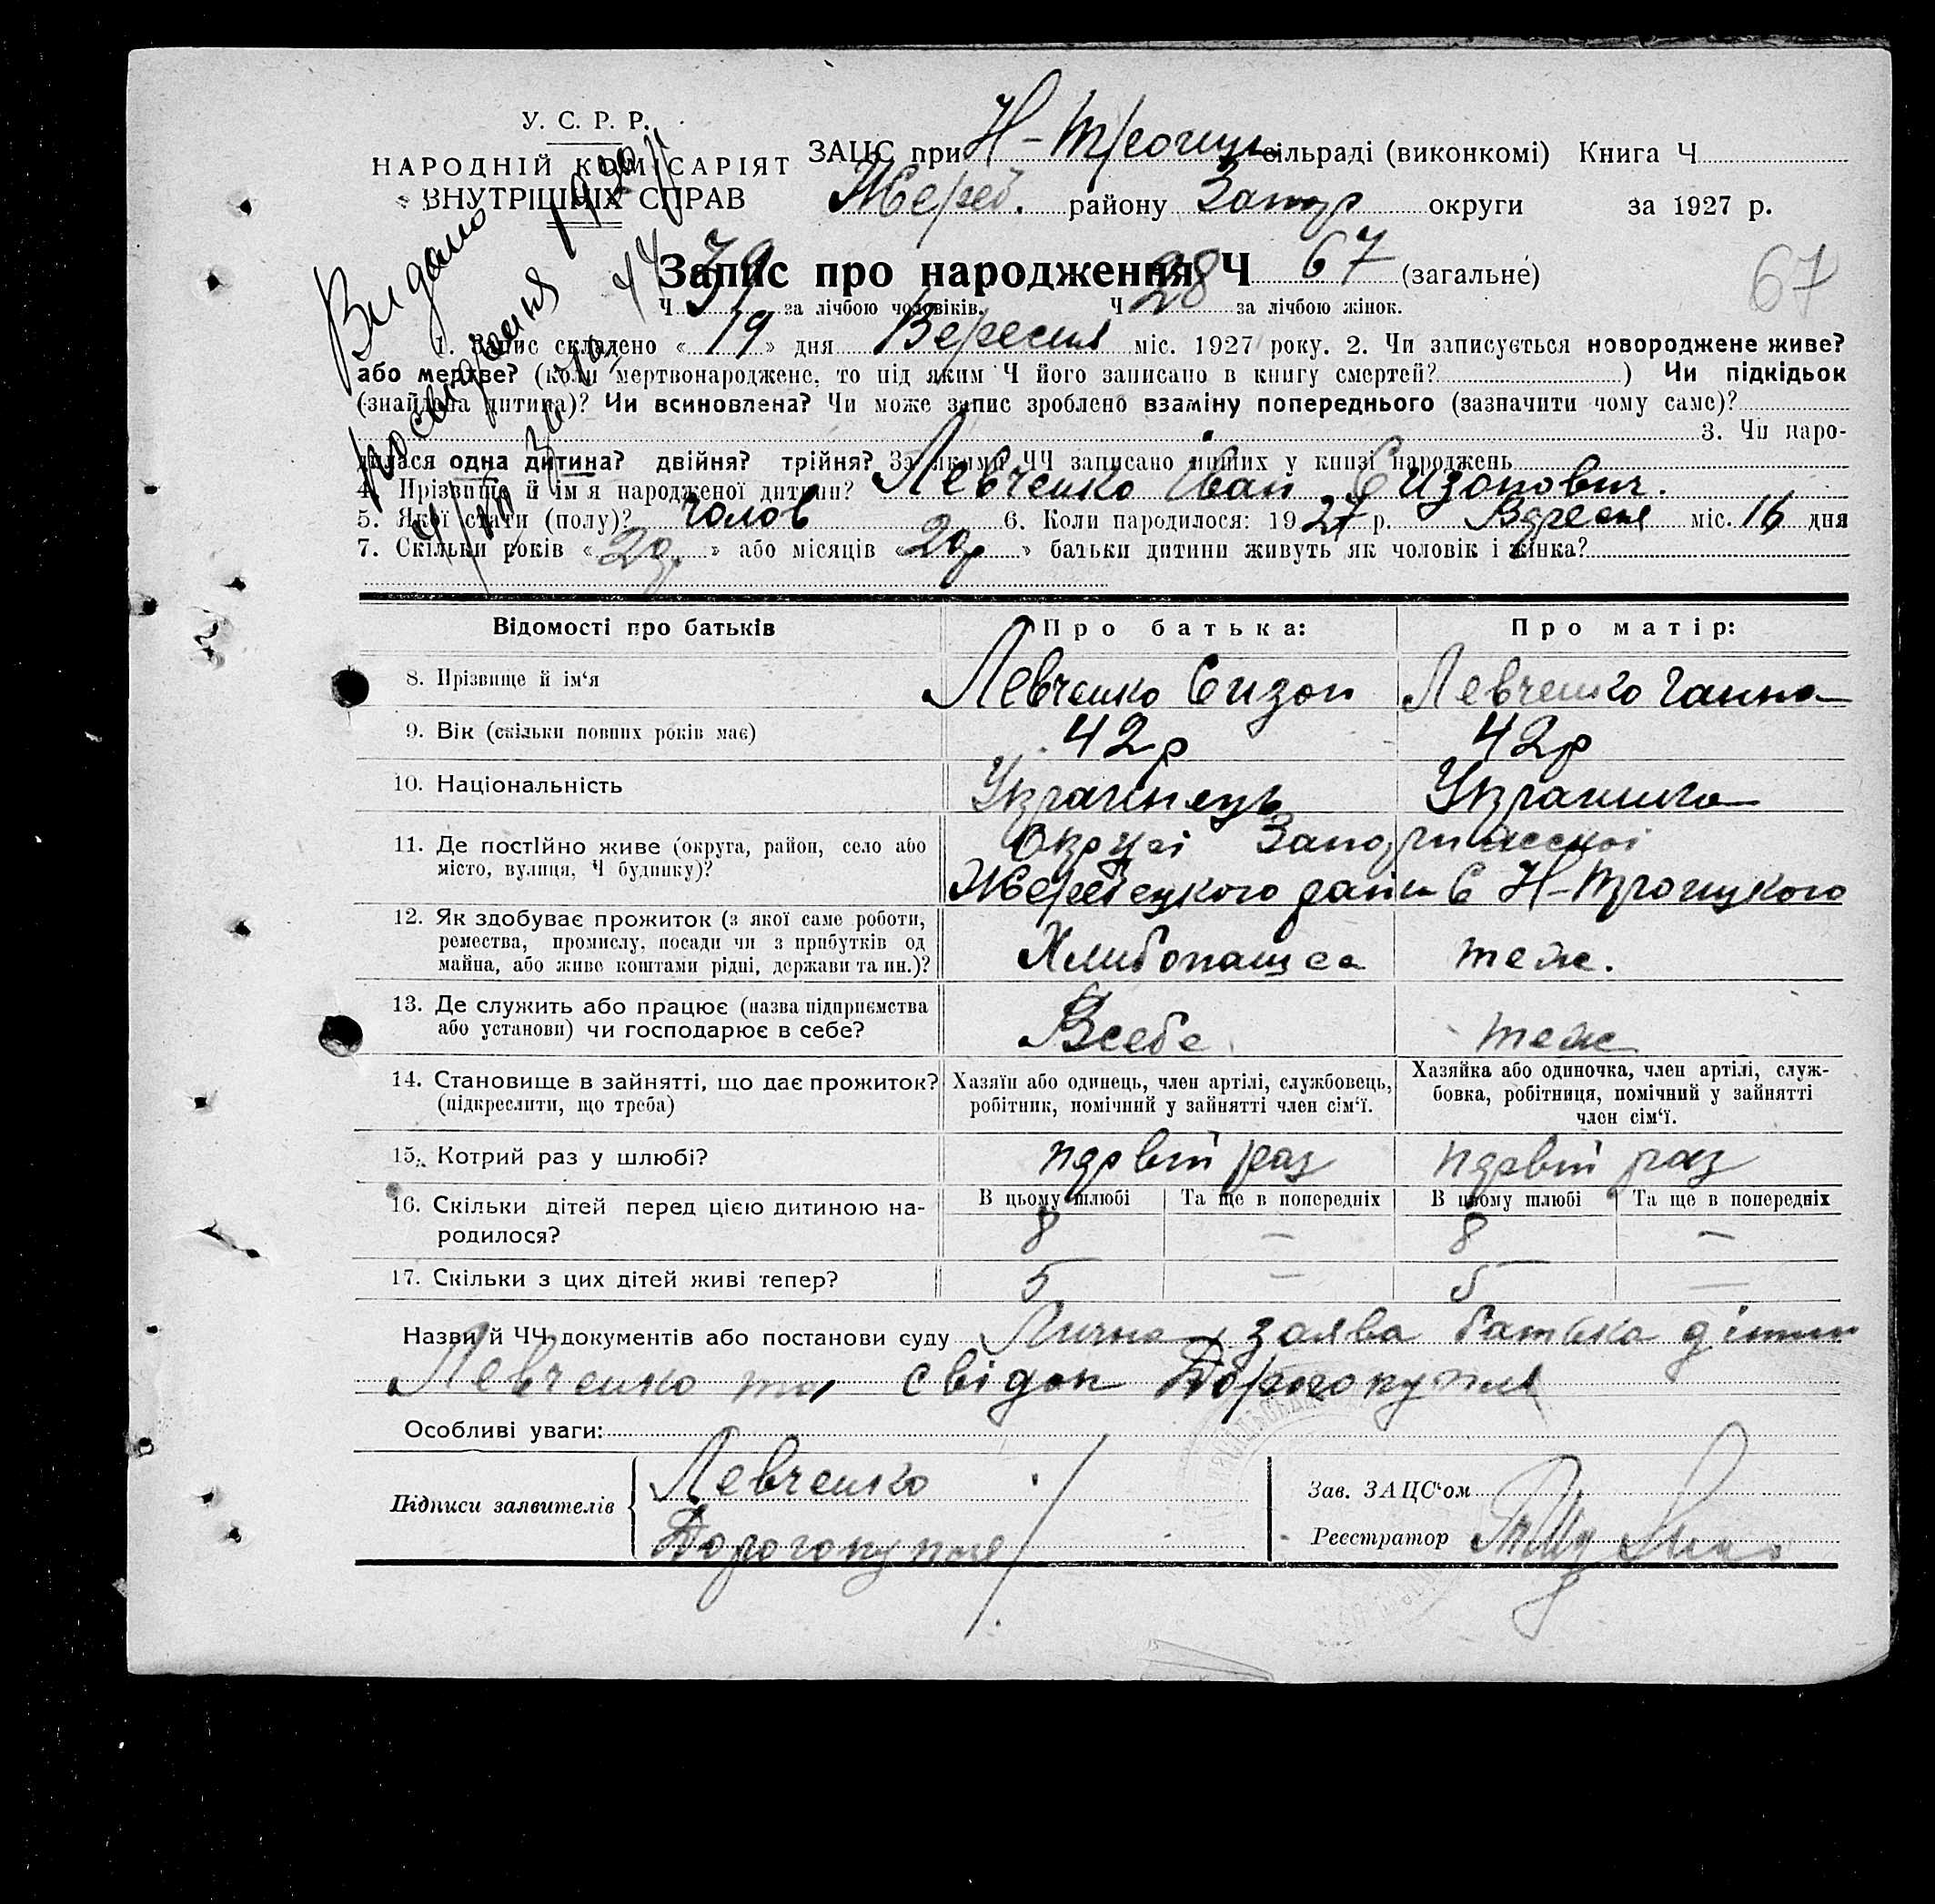 У. С. Р. Р.
НАРОДНІЙ КОМІСАРІЯТ
ВНУТРІШНІХ СПРАВ
ЗАЦС при Н-Троицк сільраді (виконкомі) Книга Ч
Жереб. району Запор округи за 1927 р.
Видано
посвідчення
Запис про народження Ч 67 (загальне)
67
Ч 39 за лічбою чоловіків. Ч 28 за лічбою жінок.
1. Запис складено « 19 » дня Вересня міс. 1927 року. 2. Чи записується новороджене живе?
або мертве? (коли мертвонароджене, то під яким Ч його записано в книгу смертей? ) Чи підкідьок
(знайдена дитина)? Чи всиновлена? Чи може запис зроблено взаміну попереднього (зазначити чому саме)?
3. Чи наро-
дилася одна дитина? двійня? трійня? За якими ЧЧ записано инших у книзі народжень
4. Прізвище й ім'я народженої дитини? Левченко Іван Сизонович.
5. Якої стати (полу)? чолов 6. Коли народилося: 1927 р. Вересня міс. 16 дня
7. Скільки років « 2g. » або місяців « » батьки дитини живуть як чоловік і жінка?
Відомості про батьків Про батька: Про матір:
8. Прізвище й ім'я Левченко Сизон Левченко Ганна
9. Вік (скільки повних років має) 42 р 42 р
10. Національність Українець Украинка
11. Де постійно живе (округа, район, село або місто, вулиця, Ч будинку)? Округі Запорижскоі
Жеребецкого раін С Н-Троицкого
12. Як здобуває прожиток (з якої саме роботи,
ремества, промислу, посади чи з прибутків од
майна, або живе коштами рідні, держави та ин.)? Хлибопашес теж.
13. Де служить або працює (назва підприємства
або установи) чи господарює в себе? Всебе теж
14. Становище в зайнятті, що дає прожиток?
(підкреслити, що треба)
Хазяїн або одинець, член артілі, службовець,
робітник, помічний у зайнятті член сім'ї.
Хазяйка або одиночка, член артілі, служ-
бовка, робітниця, помічний у зайнятті
член сім'ї.
15. Котрий раз у шлюбі? первій раз первій раз
В цьому шлюбі Та ще в попередніх В цьому шлюбі Та ще в попередніх
16. Скільки дітей перед цією дитиною на-
родилося? 8 — 8 —
17. Скільки з цих дітей живі тепер? 5 — 5 —
Назви й ЧЧ документів або постанови суду Лична заява батька дітини
Левченко та свідок Дорогокупля
Особливі уваги:
Підписи заявителів Левченко
Дорогокупля
Зав. ЗАЦС'ом
Реєстратор